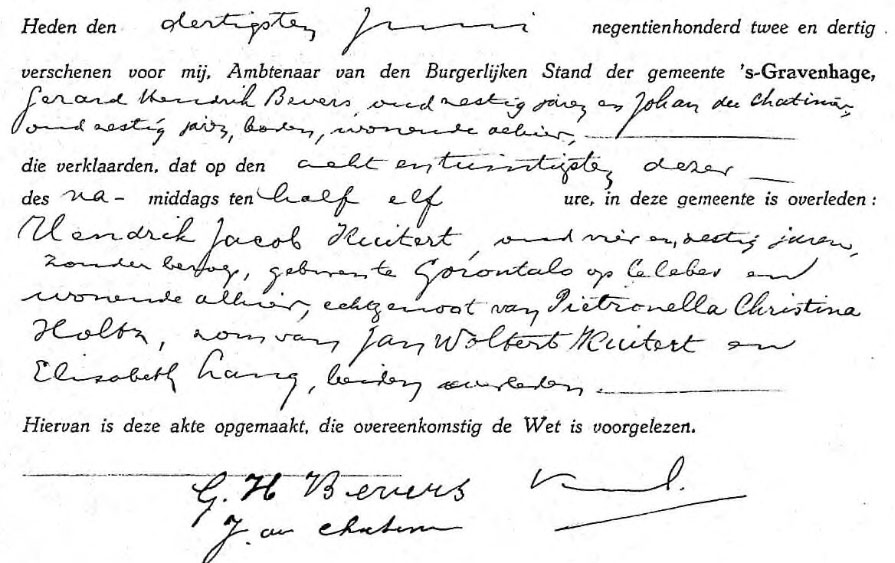 Heden den dertigsten Juni negentienhonderd twee en dertig.
verschenen voor mij, Ambtenaar van den Burgerlijken Stand der gemeente 's-Gravenhage,
Gerard Hendrik Bevers, oud zestig jaren en Johan du Chatinier,
oud zestig jaren, boden, wonende alhier,
die verklaarden, dat op den acht en twintigsten dezer
des na- middags ten half elf ure, in deze gemeente is overleden:
Hendrik Jacob Kuitert, oud vier en zestig jaren,
zonder beroep, geboren te Gorontalo op Celebes en
wonende alhier, echtgenoot van Pietronella Christina
Holtz, zoon van Jan Woltert Kuitert en
Elisabeth Lang, beiden overleden.
Hiervan is deze akte opgemaakt, die overeenkomstig de Wet is voorgelezen.
G. H Bevers
J. du Chatinier